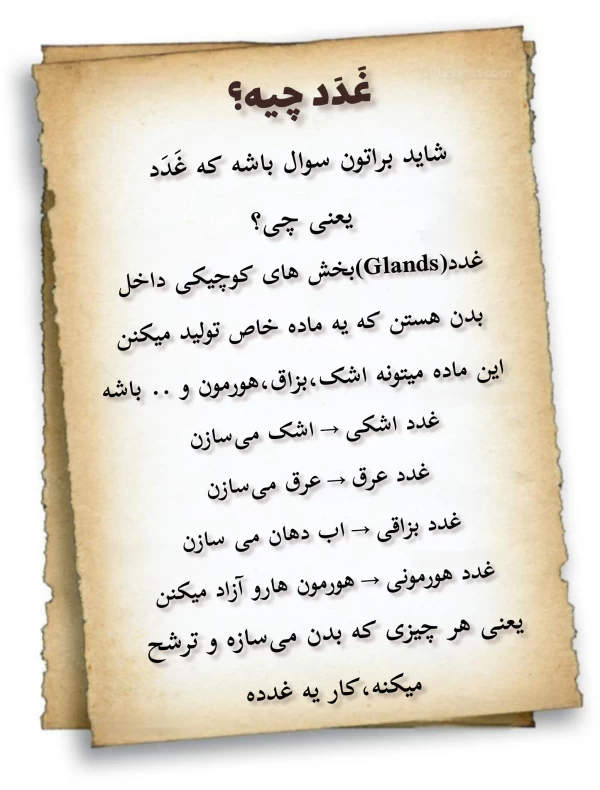 غَدَد چیه؟
شاید براتون سوال باشه که غَدَد
یعنی چی؟
غدد(Glands)بخش های کوچیکی داخل
بدن هستن که یه ماده خاص تولید میکنن
این ماده میتونه اشک،بزاق،هورمون و .. باشه
غدد اشکی → اشک می‌سازن
غدد عرق → عرق می‌سازن
غدد بزاقی → اب دهان می سازن
غدد هورمونی → هورمون هارو آزاد میکنن
یعنی هر چیزی که بدن می‌سازه و ترشح
میکنه،کار یه غدده